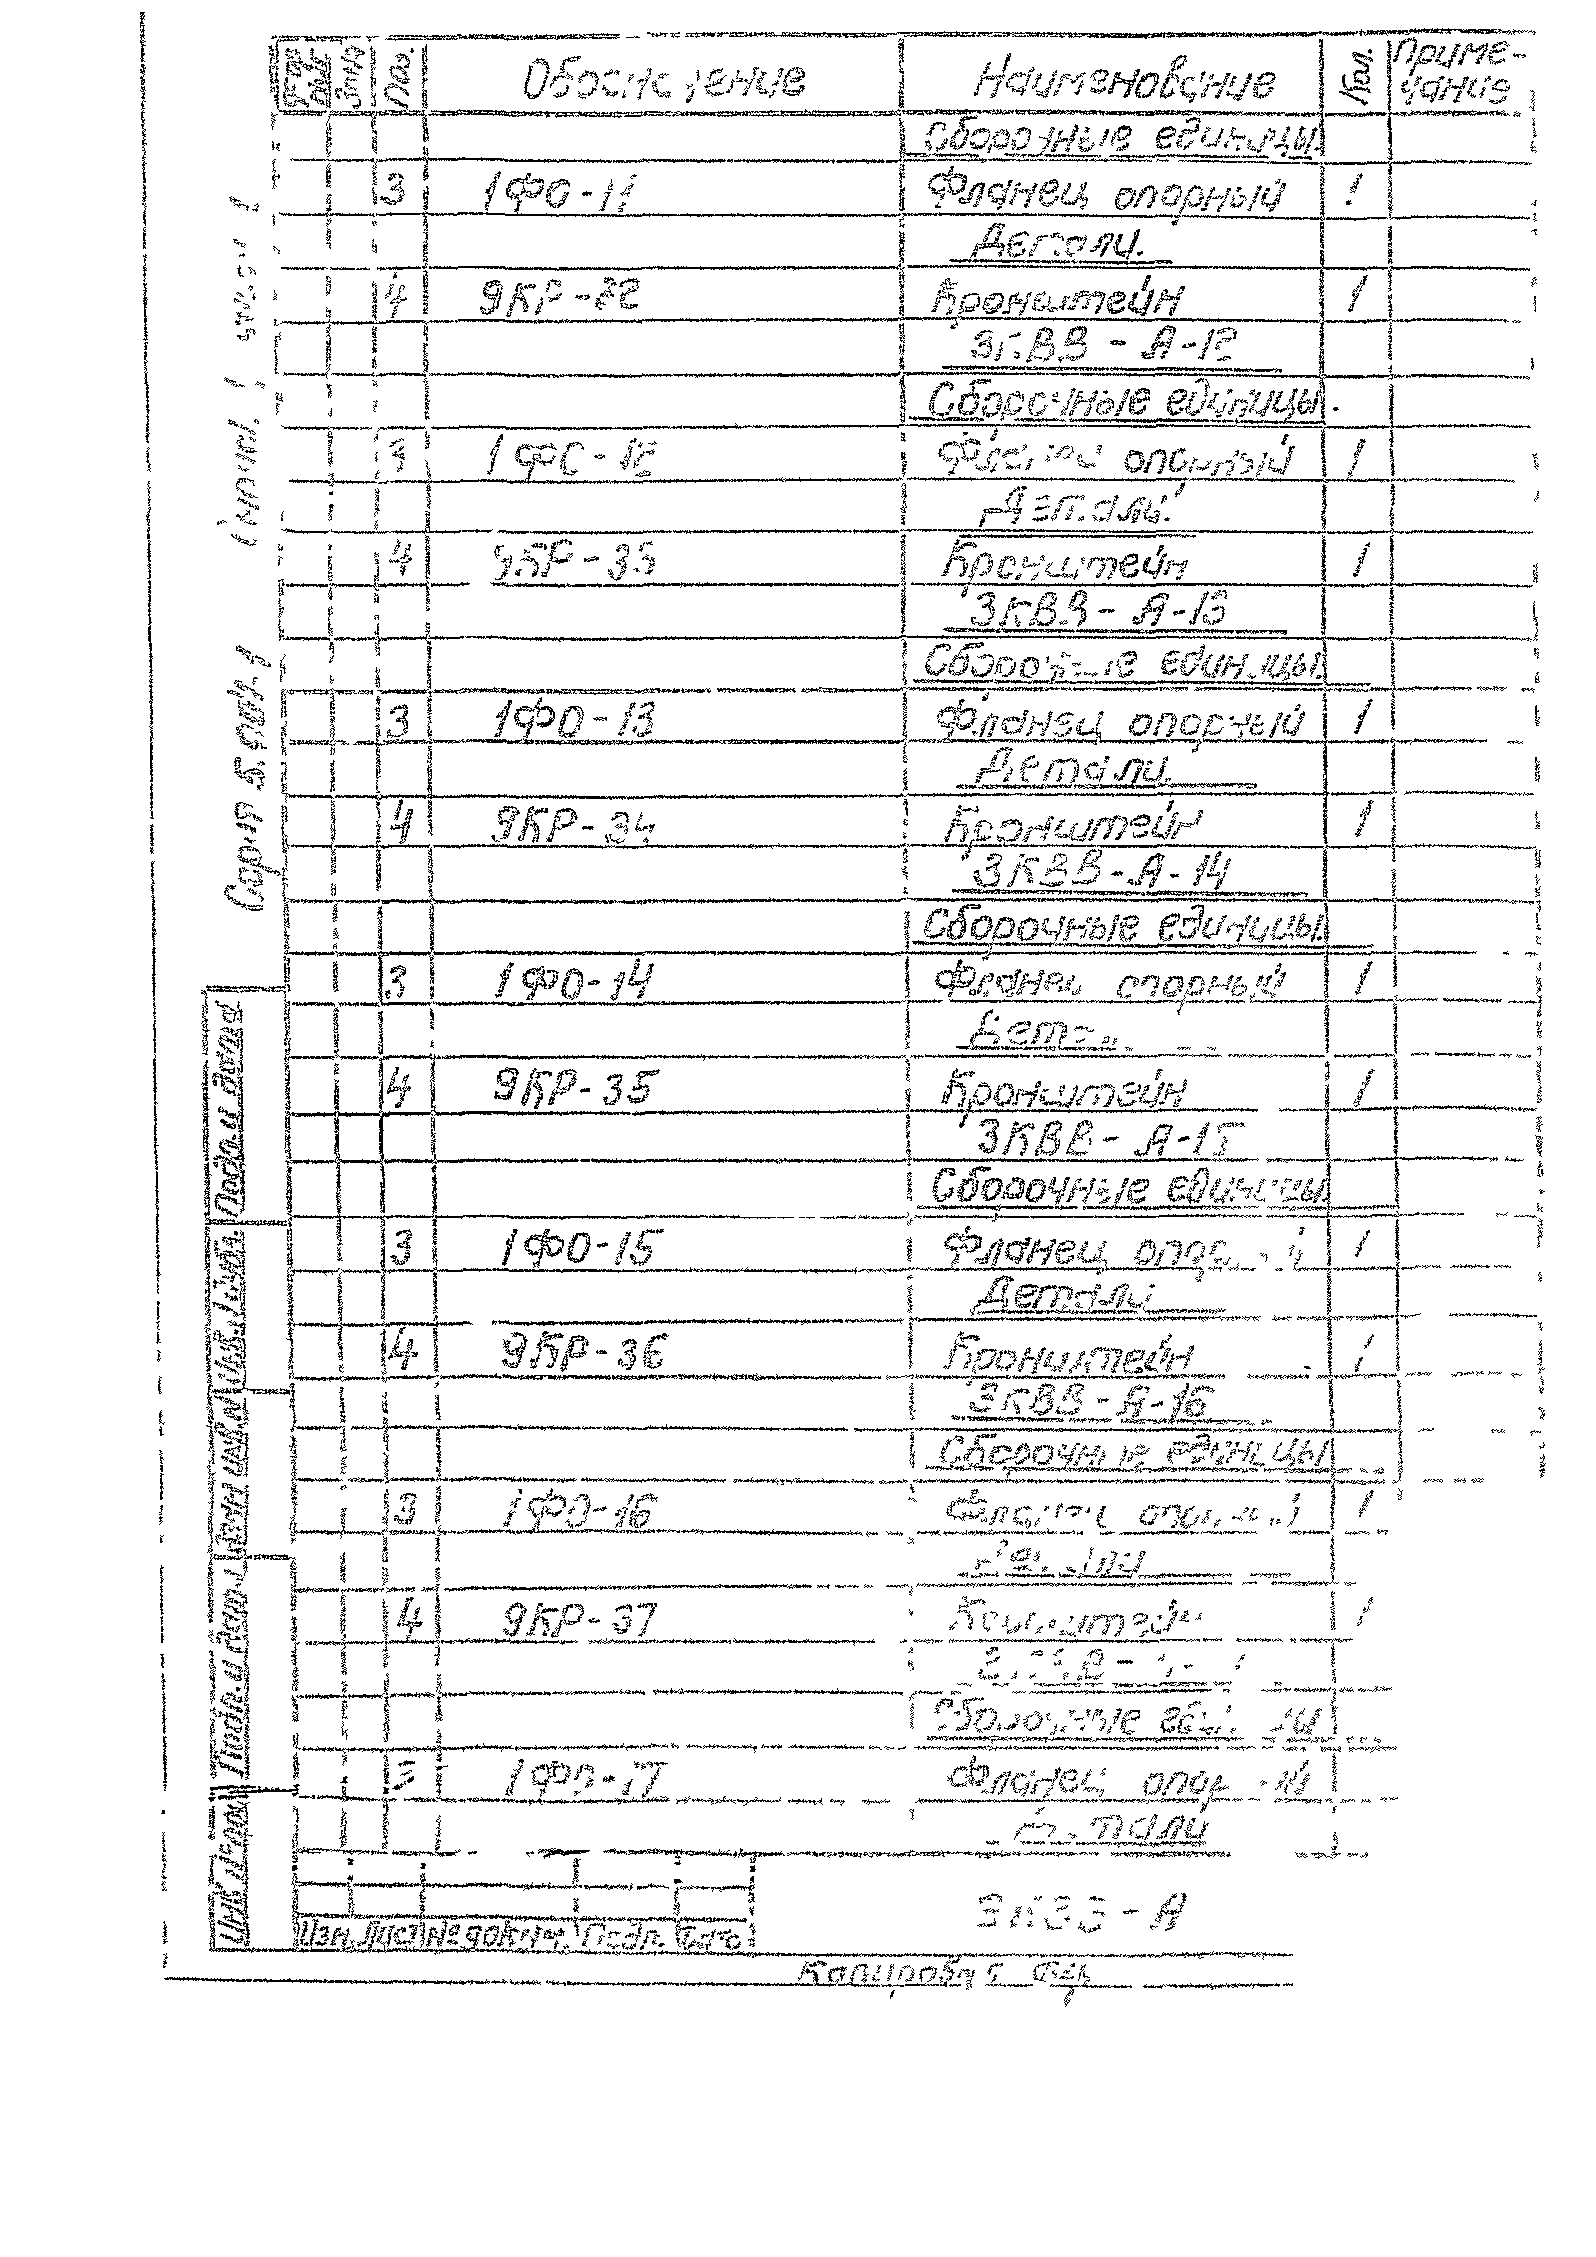 Поз. Обозначение Наименование Кол. Приме-
чание
Сборочные единицы.
3 1ФО-11 Фланец опорный 1
Детали.
4 9КР-32 Кронштейн 1
3КВВ-А-12
Сборочные единицы.
3 1ФО-12 Фланец опорный 1
Детали.
4 9КР-33 Кронштейн 1
3КВВ-А-13
Сборочные единицы.
3 1ФО-13 Фланец опорный 1
Детали.
4 9КР-34 Кронштейн 1
3КВВ-А-14
Сборочные единицы.
3 1ФО-14 Фланец опорный 1
Детали
4 9КР-35 Кронштейн 1
3КВВ-А-15
Сборочные единицы.
3 1ФО-15 Фланец опорный 1
Детали
4 9КР-36 Кронштейн 1
3КВВ-А-16
Сборочные единицы
3 1ФО-16 Фланец опорный 1
Детали
4 9КР-37 Кронштейн 1
Сборочные единицы
3 1ФО-17 Фланец опорный
Детали
3КВВ-А
Изм. Лист № докум. Подп. Дата
Копировал
Серия 5.904-1
Подп. и дата
Инв. № дубл.
Взам. инв. №
Подп. и дата
Инв. № подл.